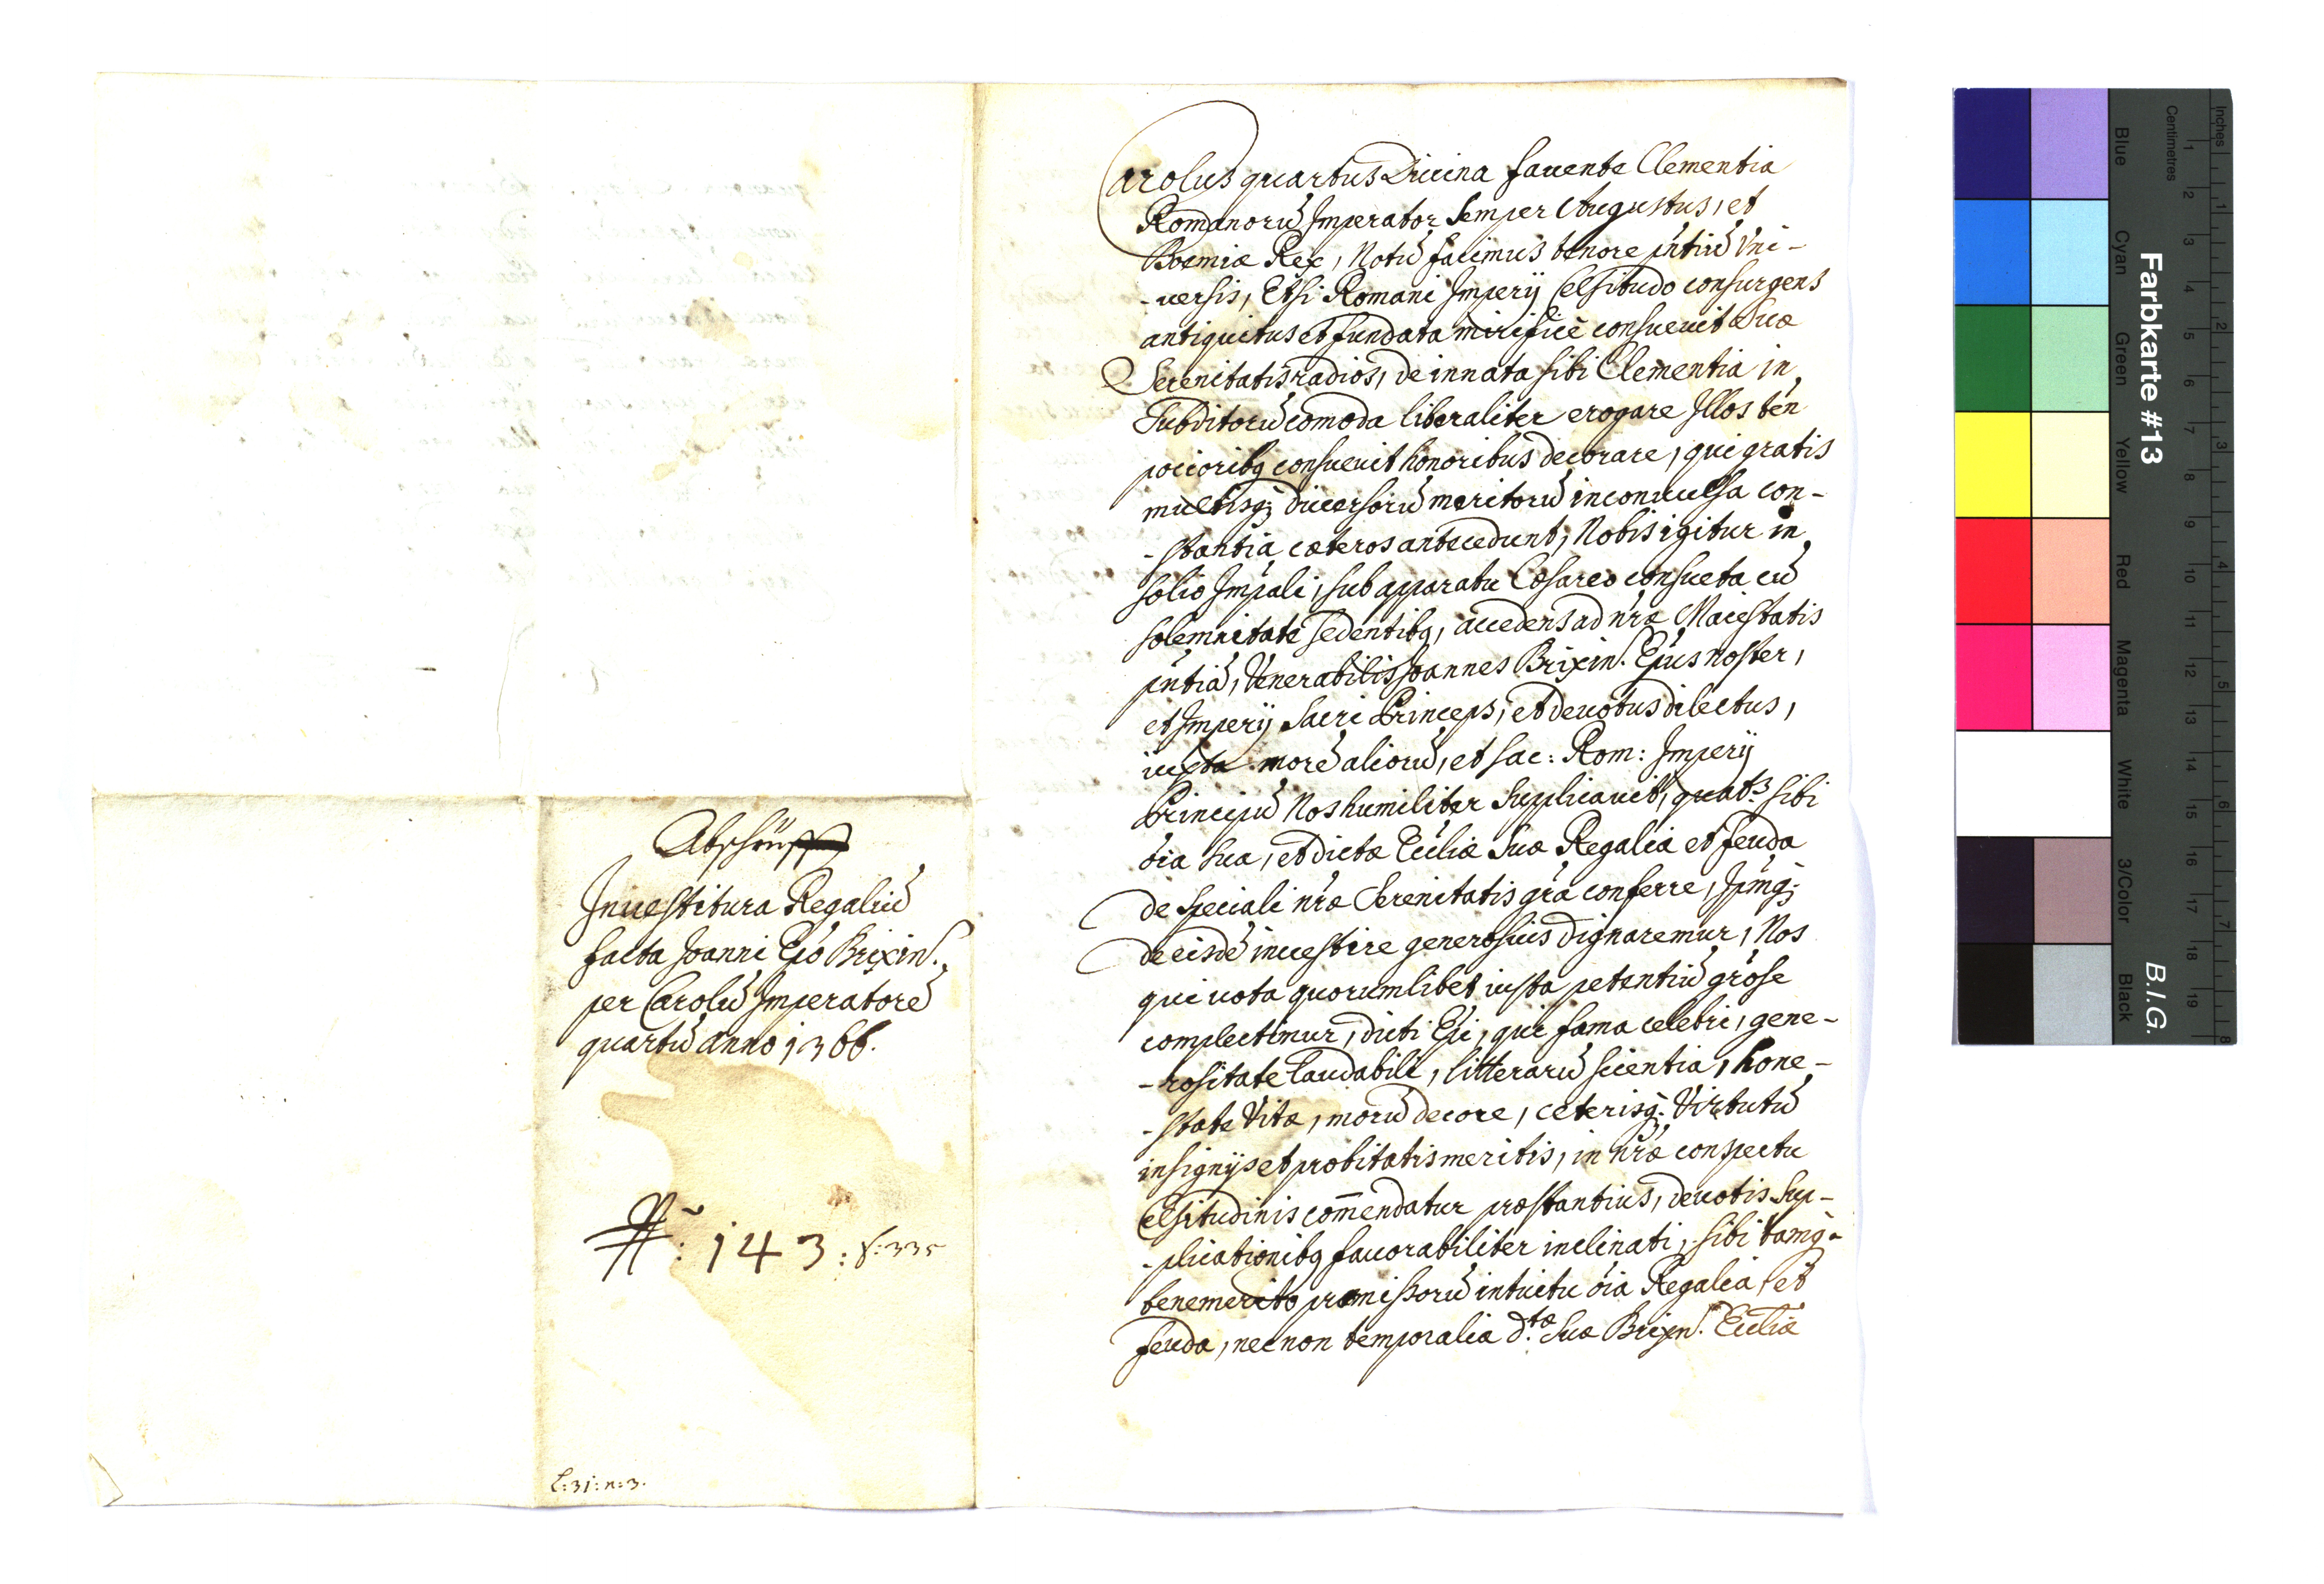 Abschrifft
Inuestitura Regaliū
facta Joanni Epo Brixin.
per Carolū Imperatorē
quartū anno 1366.
N: 143: f:335
L:31:n:3.
Carolus quartus Diuina fauente Clementia
Romanorū Imperator Semper Augustus, et
Boemiæ Rex, Notū facimus tenore pñtiū Vni-
-uersis, Etsi Romani Imperij Celsitudo consurgens
antiquitus et fundata mirificè consueuit Suæ
Serenitatis radios, de innata sibi Clementia in
Subditorū comoda liberaliter erogare Illos tn̄
pocioribq consueuit honoribus decorare, qui gratis
multisq; diuersorū meritorū inconuulsa con-
-stantia cæteros antecedunt, Nobis igitur in
solio Imp̄ali, sub apparatu Cæsareo consueta cū
solemnitate sedentibq, accedens ad nr̄æ Maiestatis
pñtiā, Venerabilis Joannes Brixin. Ep̄us noster,
et Imperij Sacri Princeps, et deuotus dilectus,
iuxta morē aliorū, et sac: Rom: Imperij
Principū Nos humiliter Supplicauit, quat.s sibi
oīa sua, et dictæ Ecc̄liæ Suæ Regalia et feuda
de speciali nr̄æ Serenitatis gr̄a conferre, Ip̄mq;
de eisdē inuestire generosius dignaremur, Nos
qui uota quorumlibet iusta petentiū gr̄ose
complectimur, dicti Ep̄i, qui fama celebri, gene-
-rositate laudabili, litterarū scientia, hone-
-state Vitæ, morū decore, ceterisq. Virtutū
insignijs et probitatis meritis, in nr̄æ conspectu
Celsitudinis com̄endatur præstantius, deuotis Sup-
-plicationibq fauorabiliter inclinati, sibi tamq-
benemerito præmissorū intuitu oīa Regalia, et
feuda, nec non temporalia d.tæ Suæ Brixin. Ecc̄liæ
Farbkarte #13
B.I.G.
Inches
Centimetres
1 2 3 4 5 6 7 8 9 10 11 12 13 14 15 16 17 18 19
1 2 3 4 5 6 7 8
Blue
Cyan
Green
Yellow
Red
Magenta
White
3/Color
Black